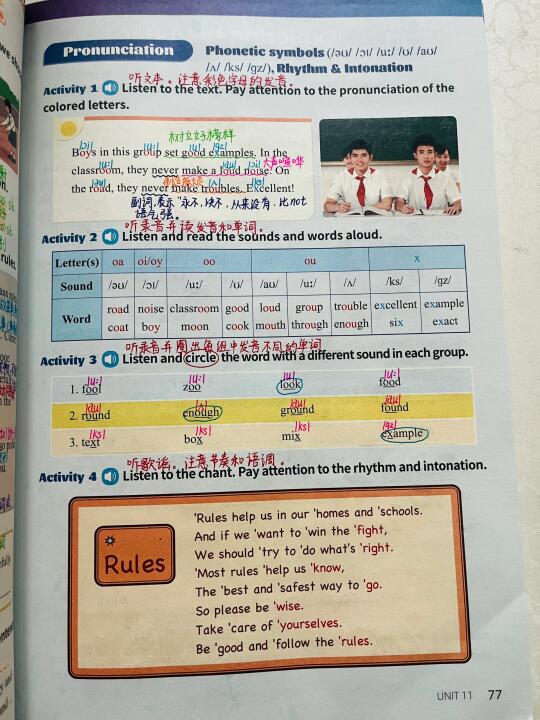 Pronunciation
Phonetic symbols (/əʊ/ /ɔɪ/ /uː/ /ʊ/ /aʊ/
/ʌ/ /ks/ /gz/), Rhythm & Intonation
听文本。注意彩色字母的发音。
Activity 1 Listen to the text. Pay attention to the pronunciation of the
colored letters.
树立好榜样
/ɔɪ/ /uː/ /ʊ/ /gz/
Boys in this group set good examples. In the
/uː/ /aʊ/ /ɔɪ/ 大声喧哗
classroom, they never make a loud noise. On
/əʊ/ 制造麻烦 /ʌ/ /ks/
the road, they never make troubles. Excellent!
副词,表示"永不,决不,从来没有,比not
语气强。
听录音并读发音和单词。
Activity 2 Listen and read the sounds and words aloud.
Letter(s) oa oi/oy oo ou x
Sound /əʊ/ /ɔɪ/ /uː/ /ʊ/ /aʊ/ /uː/ /ʌ/ /ks/ /gz/
Word road noise classroom good loud group trouble excellent example
coat boy moon cook mouth through enough six exact
听录音并圈出每组中发音不同的单词
Activity 3 Listen and circle the word with a different sound in each group.
/uː/ /uː/ /ʊ/ /uː/
1. fool zoo look food
/aʊ/ /ʌ/ /aʊ/ /aʊ/
2. round enough ground found
/ks/ /ks/ /ks/ /gz/
3. text box mix example
听歌谣。注意节奏和语调。
Activity 4 Listen to the chant. Pay attention to the rhythm and intonation.
Rules
'Rules help us in our 'homes and 'schools.
And if we 'want to 'win the 'fight,
We should 'try to 'do what's 'right.
'Most rules 'help us 'know,
The 'best and 'safest way to 'go.
So please be 'wise.
Take 'care of 'yourselves.
Be 'good and 'follow the 'rules.
UNIT 11 77